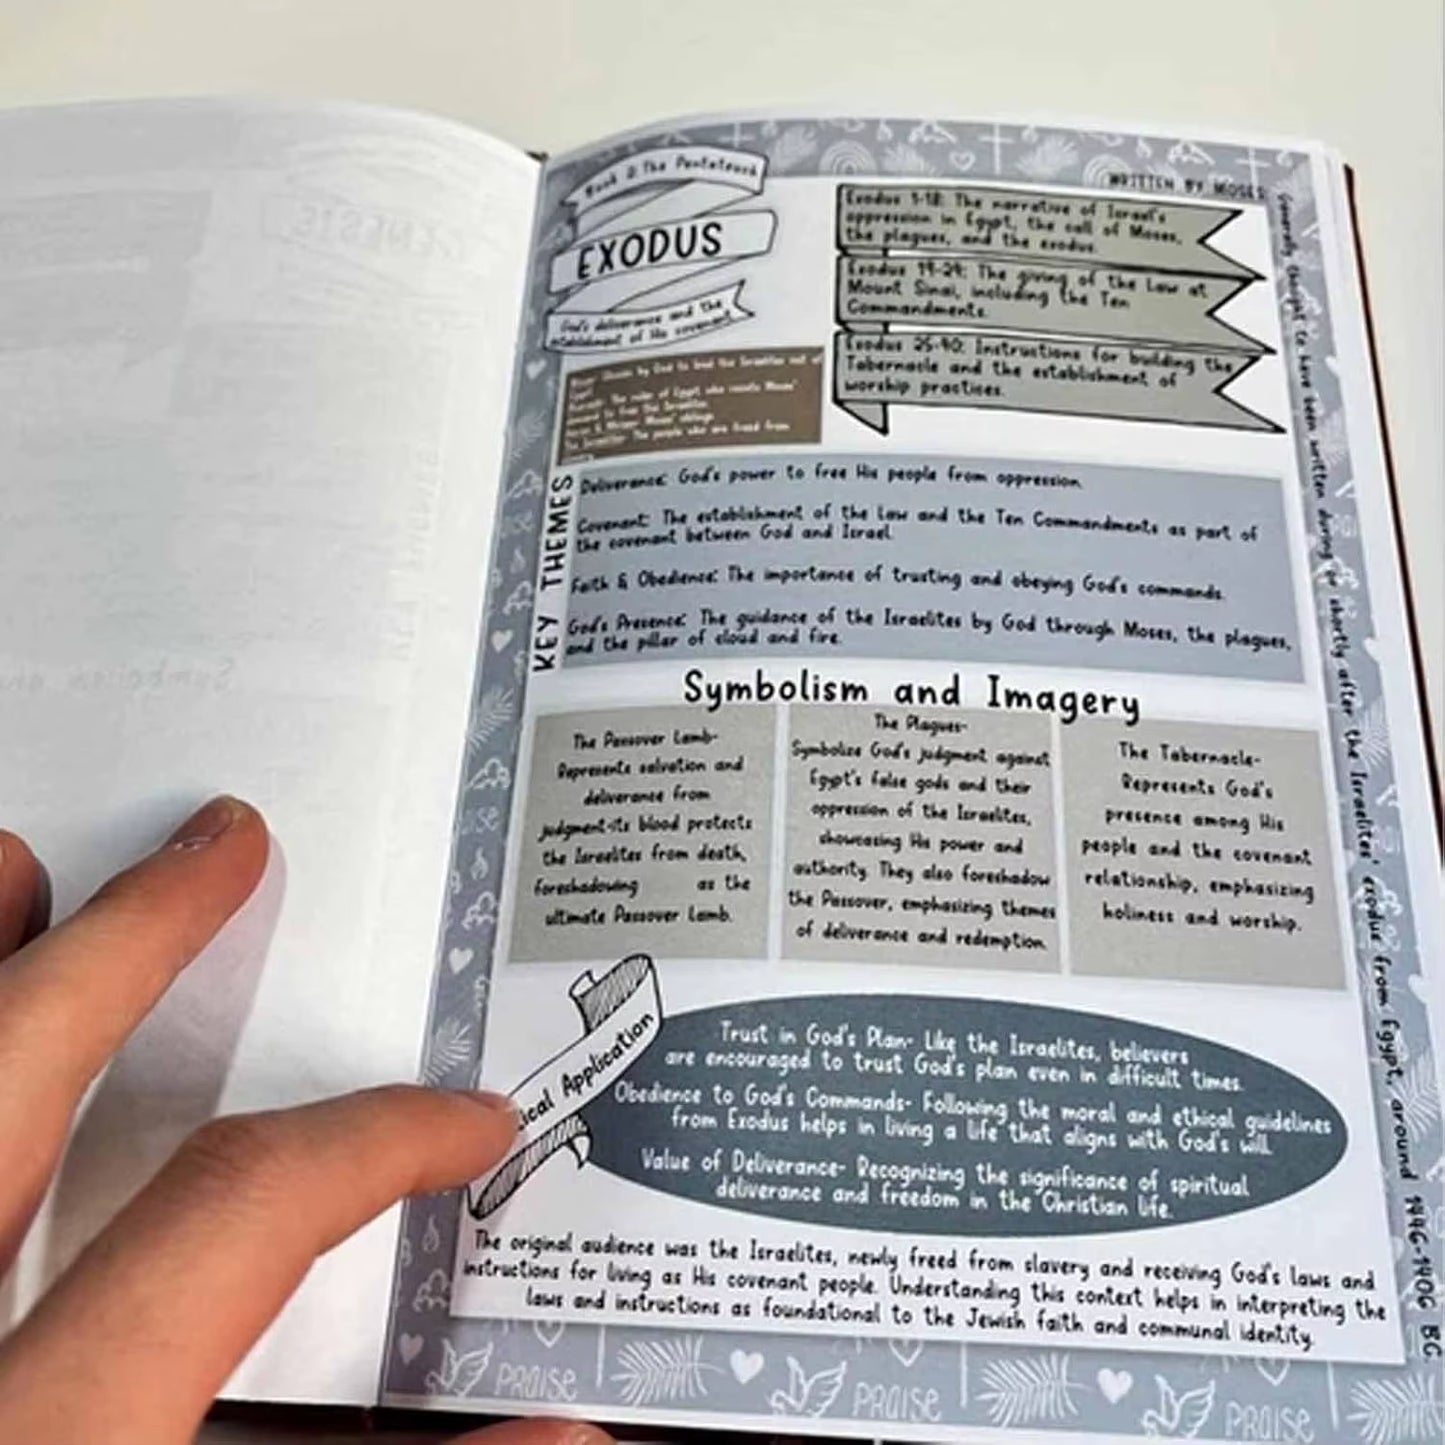 Book 2: The Pentateuch
EXODUS
God's deliverance and the
establishment of His covenant
WRITTEN BY MOSES
Exodus 1-18: The narrative of Israel's
oppression in Egypt, the call of Moses,
the plagues, and the exodus.
Exodus 19-24: The giving of the Law at
Mount Sinai, including the Ten
Commandments.
Exodus 25-40: Instructions for building the
Tabernacle and the establishment of
worship practices.
Moses: Chosen by God to lead the Israelites out of
Egypt.
Pharaoh: The ruler of Egypt who resists Moses'
demand to free the Israelites.
Aaron & Miriam: Moses' siblings.
The Israelites: The people who are freed from
KEY THEMES
Deliverance: God's power to free His people from oppression.
Covenant: The establishment of the Law and the Ten Commandments as part of
the covenant between God and Israel.
Faith & Obedience: The importance of trusting and obeying God's commands.
God's Presence: The guidance of the Israelites by God through Moses, the plagues,
and the pillar of cloud and fire.
Symbolism and Imagery
The Passover Lamb-
Represents salvation and
deliverance from
judgment-its blood protects
the Israelites from death,
foreshadowing as the
ultimate Passover Lamb.
The Plagues-
Symbolize God's judgment against
Egypt's false gods and their
oppression of the Israelites,
showcasing His power and
authority. They also foreshadow
the Passover, emphasizing themes
of deliverance and redemption.
The Tabernacle-
Represents God's
presence among His
people and the covenant
relationship, emphasizing
holiness and worship.
ical Application
Trust in God's Plan- Like the Israelites, believers
are encouraged to trust God's plan even in difficult times.
Obedience to God's Commands- Following the moral and ethical guidelines
from Exodus helps in living a life that aligns with God's will.
Value of Deliverance- Recognizing the significance of spiritual
deliverance and freedom in the Christian life.
The original audience was the Israelites, newly freed from slavery and receiving God's laws and
instructions for living as His covenant people. Understanding this context helps in interpreting the
laws and instructions as foundational to the Jewish faith and communal identity.
Generally thought to have been written during or shortly after the Israelites' exodus from Egypt, around 1446-1406 BC.
PRAISE
PRAISE
PRAISE